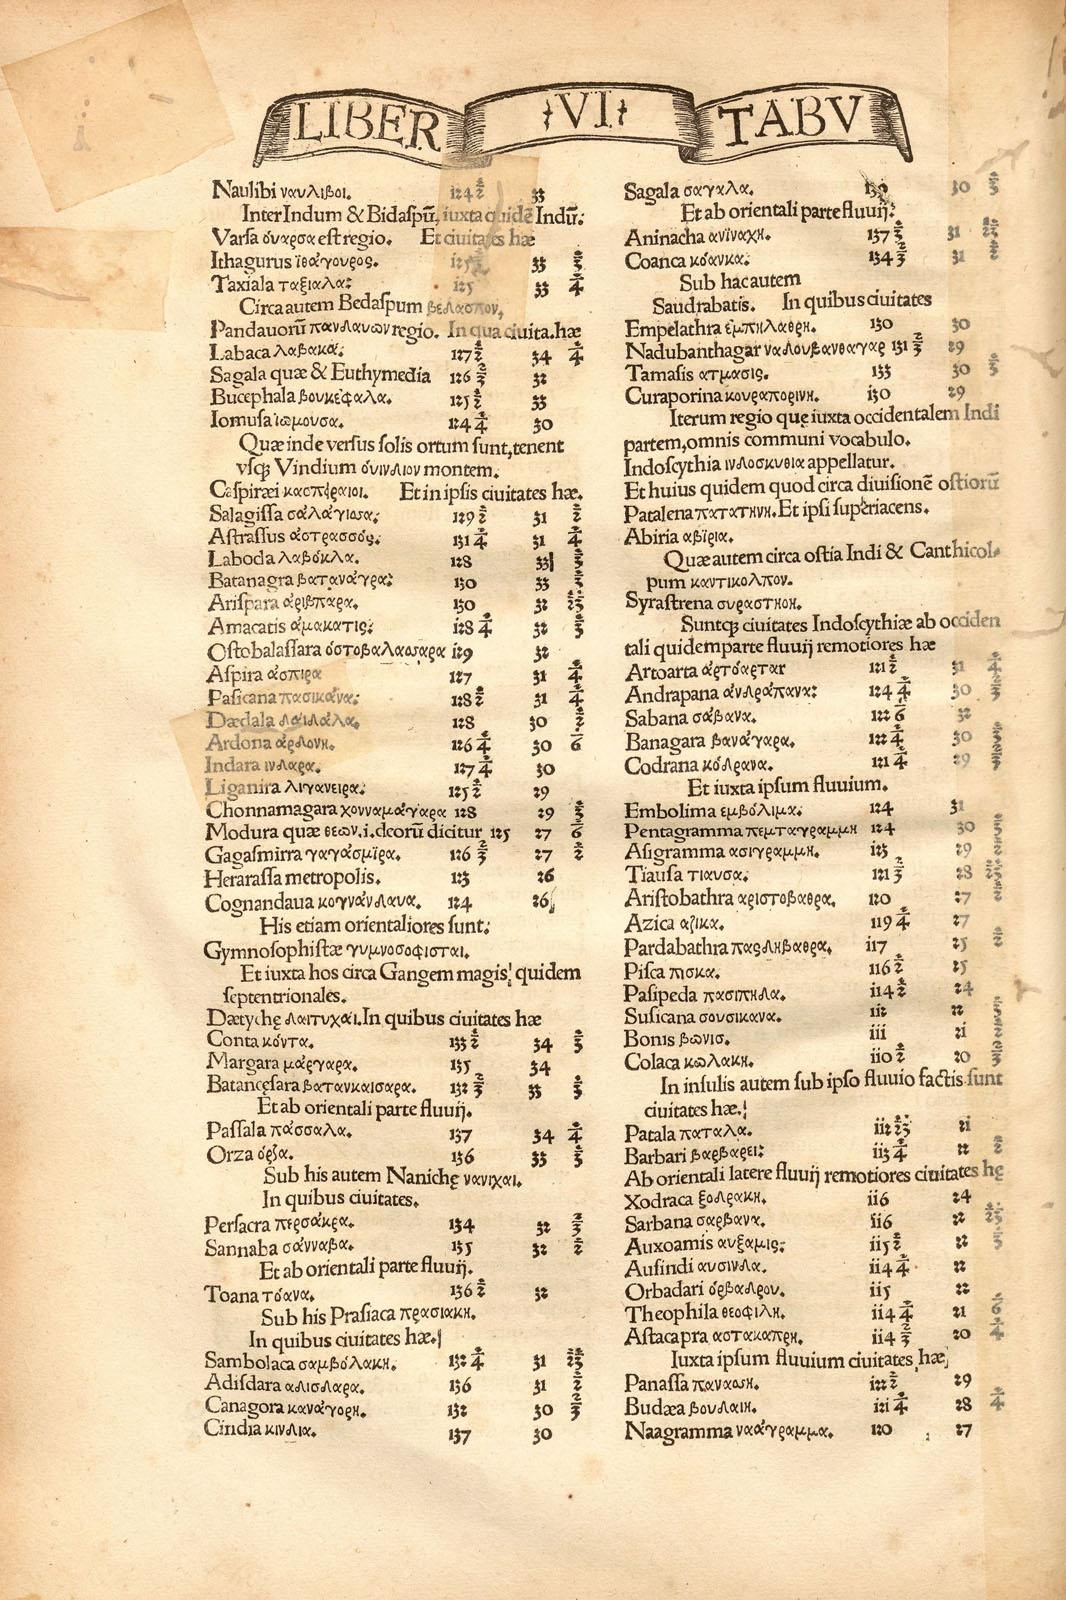 LIBER VI TABV
Naulibi ναυλιβοι. 124 ½ 33
Inter Indum & Bidaspū, iuxta quidē Indū:
Varsa ὀυαρσα est regio. Et ciuitates hæ
Ithagurus ἰθάγουρος. 33 ⅓
Taxiala ταξιαλα: 125 33 ¼
Circa autem Bedaspum βεδασπον,
Pandauorū πανδαυων regio. In qua ciuita. hæ
Labaca λαβακα: 127 ½ 34 ¼
Sagala quæ & Euthymedia 126 ⅔ 32
Bucephala βουκέφαλα. 125 ½ 33
Iomusa ἰωμουσα. 124 ¼ 30
Quæ inde versus solis ortum sunt, tenent
vsq; Vindium ὀυινδιον montem.
Caspiræi κασπήραιοι. Et in ipsis ciuitates hæ.
Salagissa σαλάγισσα: 129 ½ 31 ½
Astrassus ἀστρασσός. 131 ¼ 31 ¼
Laboda λαβόκλα. 128 33 ⅓
Batanagra βατανάγρα: 130 33 ⅓
Arispara ἀρισπαρα. 130 32
Amacatis ἀμακατις: 128 ¼ 32 ⅓
Ostobalassara ὀστοβαλασαρα 129 32
Aspira ἀσπιρα 127 31 ¼
Pasicana πασικάνα: 128 ½ 31 ¼
Dædala δαιδάλα. 128 30 ½
Ardona ἀρδονη. 126 ¼ 30 6
Indara ινδαρα. 127 ¼ 30
Liganira λιγανειρα. 125 ½ 29
Chonnamagara χονναμάγαρα 128 29 ⅓
Modura quæ θεων. i. deorū dicitur 125 27 6
Gagasmirra γαγάσμϊρα. 126 ⅔ 27 ½
Herarassa metropolis. 123 26
Cognandaua κογνάνδαυα. 124 26
His etiam orientaliores sunt:
Gymnosophistæ γυμνοσοφισται.
Et iuxta hos circa Gangem magis, quidem
septentrionales.
Dætychę δαιτυχάι. In quibus ciuitates hæ
Conta κόντα. 133 ½ 34 ⅔
Margara μάργαρα. 135 34
Batancęsara βατανκαισαρα. 132 ⅔ 33 ⅓
Et ab orientali parte fluuij.
Passala πάσσαλα. 137 34 ¼
Orza ὀρζα. 136 33 ⅓
Sub his autem Nanichę νανιχαι.
In quibus ciuitates.
Persacra περσάκρα. 134 32 ⅔
Sannaba σάνναβα. 135 32 ½
Et ab orientali parte fluuij.
Toana τόανα. 136 ½ 32
Sub his Prasiaca πρασιακη.
In quibus ciuitates hæ.
Sambolaca σαμβόλακη. 132 ¼ 31
Adisdara αδισδαρα. 136 31 ½
Canagora κανάγορη. 132 30 ⅔
Cindia κινδια. 137 30
Sagala σαγαλα. 30 ⅓
Et ab orientali parte fluuij:
Aninacha ανϊναχη. 137 ⅓ 31
Coanca κόανκα. 134 ⅓ 31 ½
Sub hac autem
Saudrabatis. In quibus ciuitates
Empelathra ἐμπηλαθρη. 130 30
Nadubanthagar ναδουβανθαγαρ 131 ⅔ 29
Tamasis ατμασις. 133 30 ⅓
Curaporina κουραπορινη. 130 29
Iterum regio quę iuxta occidentalem Indi
partem, omnis communi vocabulo.
Indoscythia ινδοσκυθια appellatur.
Et huius quidem quod circa diuisionē ostiorū
Patalena πατατηνη. Et ipsi superiacens.
Abiria αβϊρια.
Quæ autem circa ostia Indi & Canthicol-
pum καντικολπον.
Syrastrena συραστηοη.
Suntq; ciuitates Indoscythiæ ab occiden
tali quidem parte fluuij remotiores hæ
Artoarta ἀρτόαρταr 121 ½ 31 ¼
Andrapana ἀνδράπανα: 124 ¼ 30 ⅔
Sabana σάβανα. 122 6 32
Banagara βανάγαρα. 122 ¼ 30 ⅓
Codrana κόδρανα. 121 ¼ 29 ⅓
Et iuxta ipsum fluuium.
Embolima εμβόλιμα. 124 31
Pentagramma πεμταγραμμη 124 30 ⅓
Asigramma ασιγραμμη. 123 29 ½
Tiausa τιαυσα. 121 ⅓ 28
Aristobathra αριστοβαθρα. 120 27 ½
Azica αζικα. 119 ¼ 27
Pardabathra παρδηβαθρα. 117 25 ½
Pisca πισκα. 116 ½ 25
Pasipeda πασιπηδα. 114 ½ 24
Susicana σουσικανα. 112 22 ⅓
Bonis βωνισ. 111 21 ½
Colaca κωλακη. 110 ½ 20 ⅔
In insulis autem sub ipso fluuio factis sunt
ciuitates hæ.
Patala παταλα. 112 21
Barbari βαρβαρει: 113 ¼ 22 ½
Ab orientali latere fluuij remotiores ciuitates hę
Xodraca ξοδρακη. 116 24
Sarbana σαρβανα. 116 22
Auxoamis αυξαμις: 115 ½ 22 ⅓
Ausindi αυσινδα. 114 ¼ 22
Orbadari ὀρβαδρου. 115 22
Theophila θεοφιλη. 114 ¼ 21 6
Astacapra αστακαπρη. 114 ⅔ 20 ¼
Iuxta ipsum fluuium ciuitates hæ
Panassa παναση. 122 ½ 29
Budæa βουδαιη. 121 ¼ 28 ¼
Naagramma ναάγραμμα. 120 27